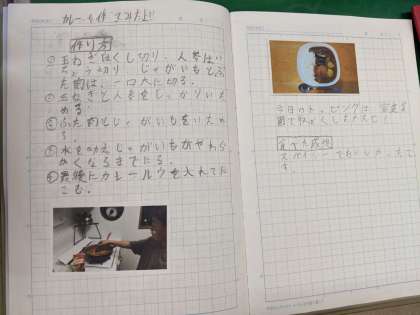 カレーを作ってみたよ!!
作り方
①玉ねぎはくし切り、人参はい
ちょう切り じゃがいもとぶ
た肉は、一口大に切る。
②玉ねぎと人参をじっくりいた
める。
③ぶた肉とじゃがいもをいため
る。
④水を加えじゃがいもがやわら
かくなるまでにる。
⑤最後にカレールウを入れてに
こむ。
今日のトッピングは
食べた感想
スパイシーでおいしかったで
す